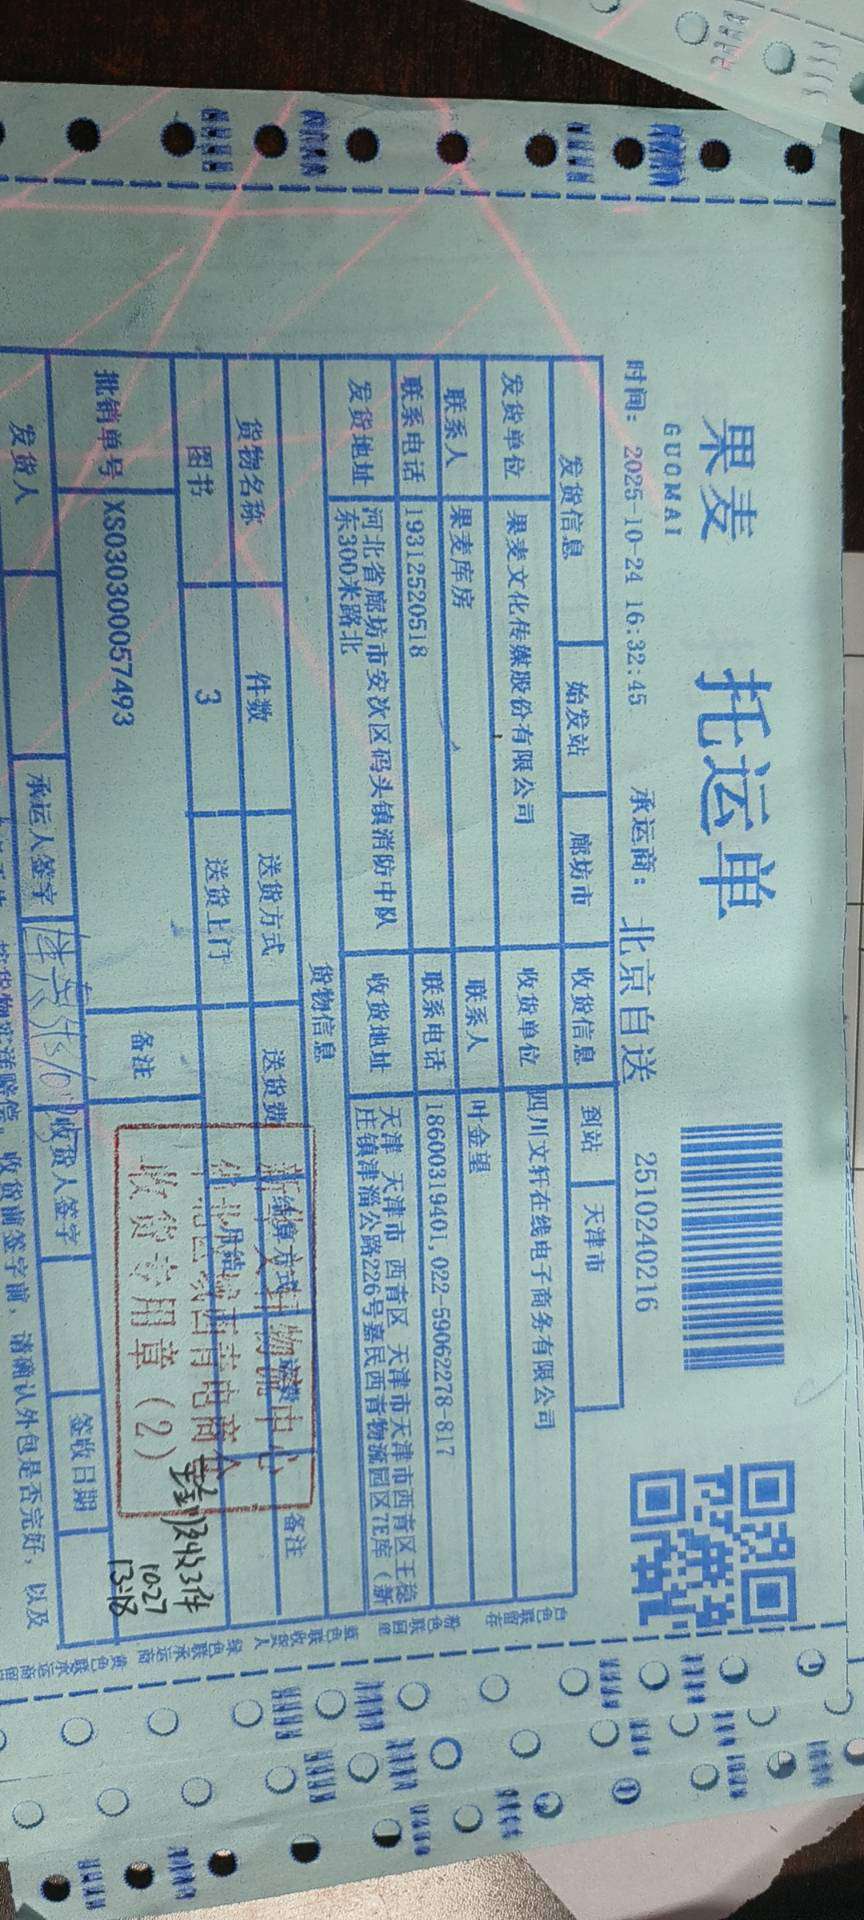 果麦
GUOMAI
托运单
时间: 2025-10-24 16:32:45 承运商: 北京自送 2510240216
发货信息 始发站 廊坊市 收货信息 到站 天津市
发货单位 果麦文化传媒股份有限公司 收货单位 四川文轩在线电子商务有限公司
联系人 果麦库房 联系人 叶金望
联系电话 19312520518 联系电话 18600319401,022-59062278-817
发货地址 河北省廊坊市安次区码头镇消防中队东300米路北 收货地址 天津 天津市 西青区 天津市天津市西青区王稳庄镇津淄公路226号嘉民西青物流园区7E库（新
货物信息
货物名称 件数 送货方式 送货费 结算方式 备注
图书 3 送货上门 月结
批销单号 XS030300057493 备注
物流中心
收货专用章（2）
实收3件
10.27
13:18
发货人 承运人签字 收货人签字 签收日期
收货前签字前，请确认外包是否完好，以及
白色联留存 粉色联回单 蓝色联收货人 绿色联承运商 黄色联承运商留